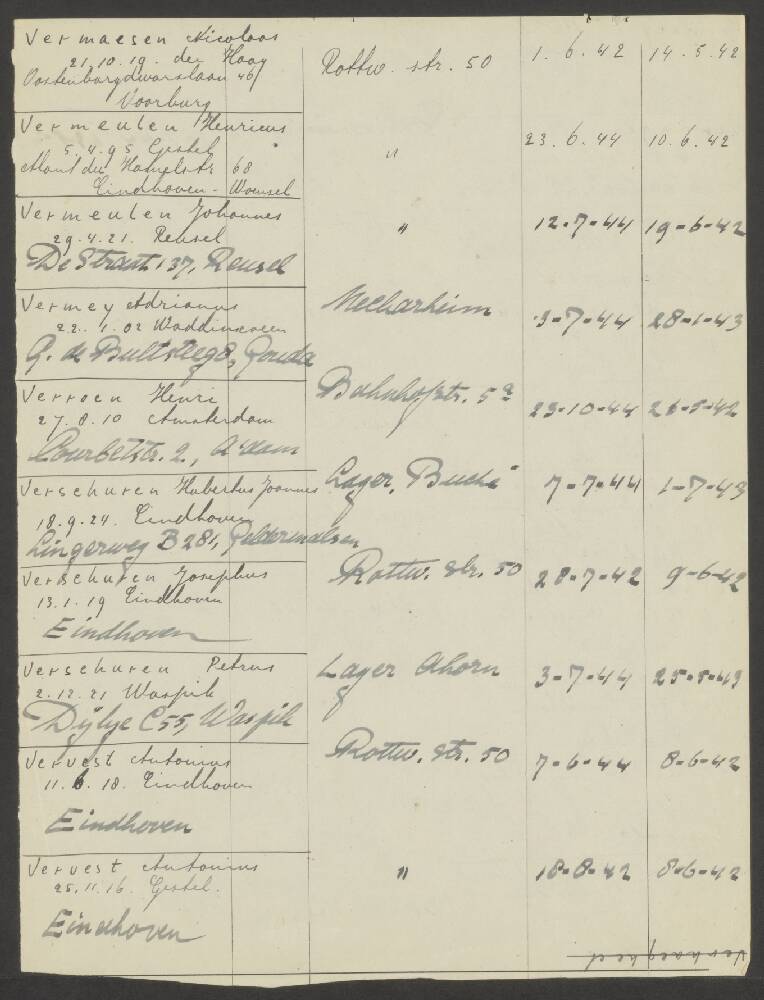 Vermaesen Nicolaas
21.10.19. den Haag Rottw. str. 50 1.6.42 14.5.42
Oostenburgdwarslaan 46
Voorburg
Vermeulen Henricus
5.4.95 Gestel " 23.6.44 10.6.42
68
Eindhoven - Woensel
Vermeulen Johannes
29.4.21. Reusel " 12-7-44 19-6-42
De Straat 137, Reusel
Vermey Adrianus Neckarheim
22.1.02 Waddinxveen 3-7-44 28-1-43
G. de Bultsteeg 8, Gouda
Verroen Henri Bahnhofstr. 5a
27.8.10 Amsterdam 23-10-44 26-5-42
Courbetstr. 2, A'dam
Verschuren Hubertus Joannes Lager, Buche 7-7-44 1-7-43
18.9.24. Eindhoven
Lingerweg B 281, Geldermalsen
Verschuren Josephus Rottw. str. 50 28-7-42 9-6-42
13.1.19 Eindhoven
Eindhoven
Verschuren Petrus Lager Ahorn 3-7-44 25-5-43
2.12.21 Waspik
C 55, Waspik
Vervest Antonius Rottw. str. 50 7-6-44 8-6-42
11.6.18. Eindhoven
Eindhoven
Vervest Antonius " 18-8-42 8-6-42
25.11.16. Gestel.
Eindhoven